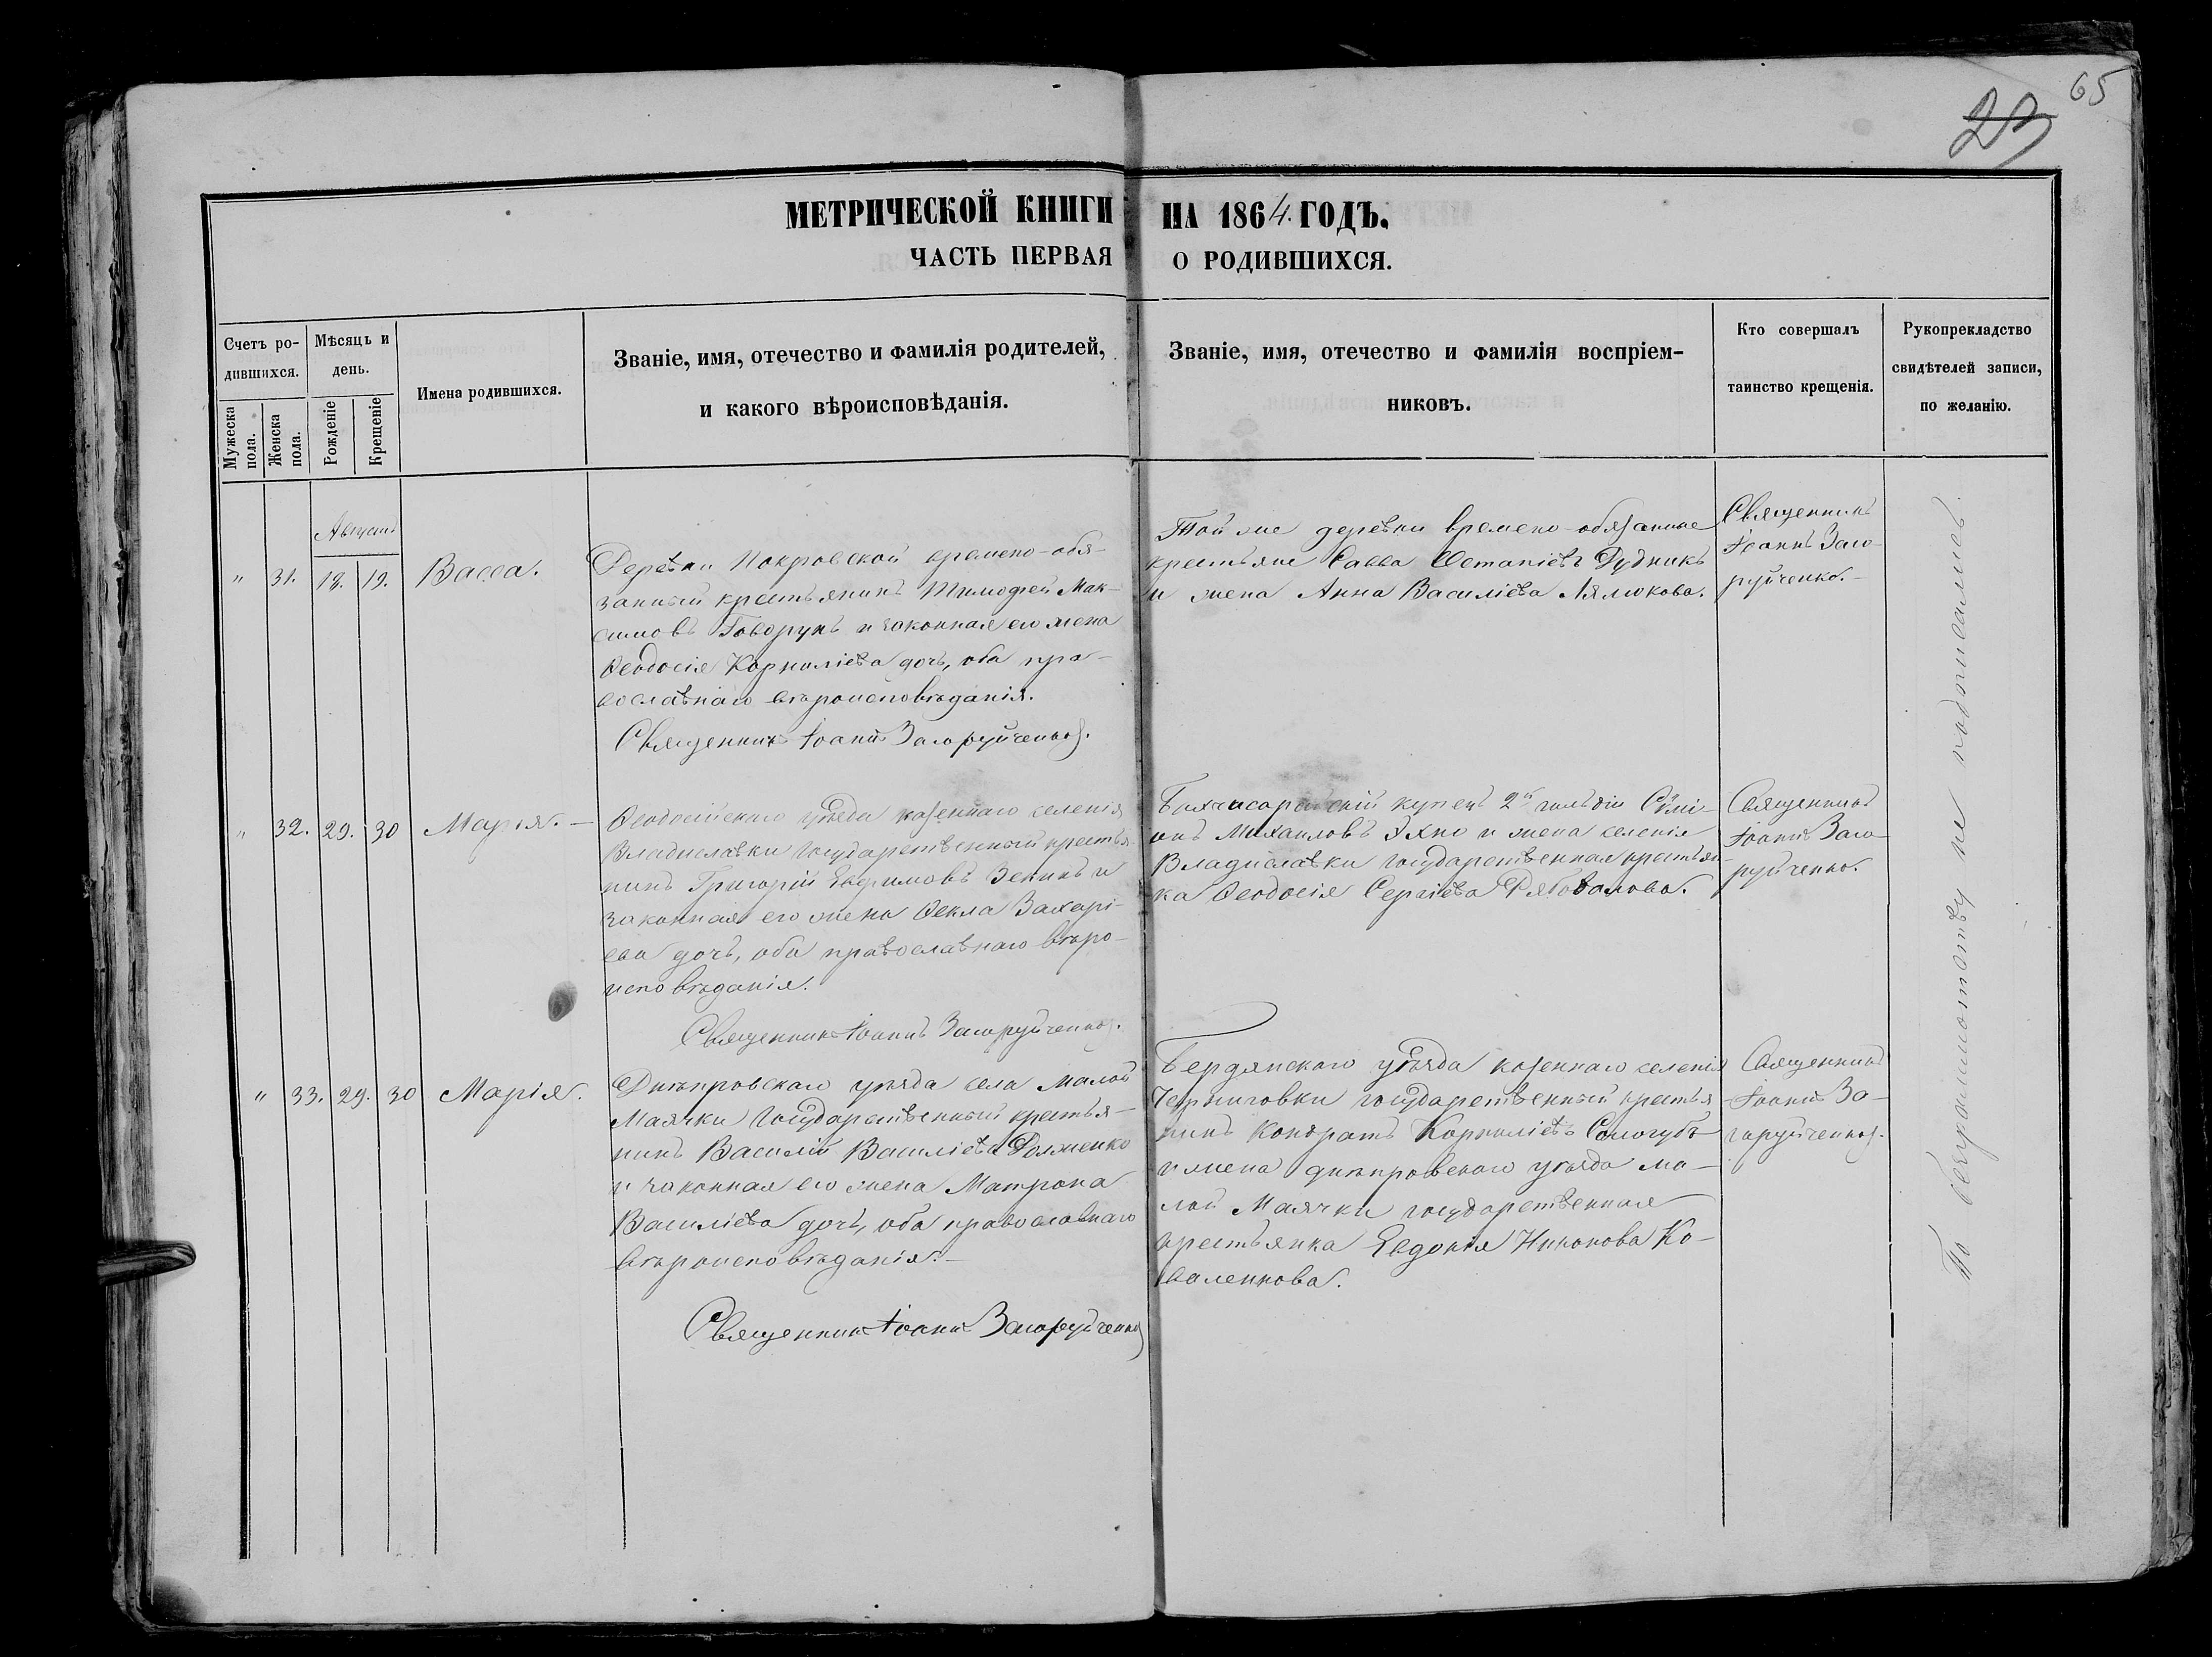 65
23
МЕТРИЧЕСКОЙ КНИГИ НА 1864. ГОДЪ.
ЧАСТЬ ПЕРВАЯ О РОДИВШИХСЯ.
Счетъ ро-
дившихся.
Мужеска пола.
Женска пола.
Мѣсяцъ и
день.
Рожденіе
Крещеніе
Имена родившихся.
Званіе, имя, отечество и фамилія родителей,
и какого вѣроисповѣданія.
Званіе, имя, отечество и фамилія воспріем-
никовъ.
Кто совершалъ
таинство крещенія.
Рукопрекладство
свидѣтелей записи,
по желанію.
Августъ
" 31. 18. 19. Васса.
Деревни Покровской времено-обя-
занный крестьянинъ Тимофей Мак-
симовъ Говорунъ и законная его жена
Ѳеодосія Корниліева дочь, оба пра-
вославнаго вѣроисповѣданія.
Священникъ Іоаннъ Загоруйченко.
Той же деревни времено-обязанные
крестьяне Савва Остапіевъ Дудникъ
и жена Анна Василіева Лялюкова.
Священникъ
Іоаннъ Заго-
руйченко.
" 32. 29. 30 Марія. –
Ѳеодосійскаго уѣзда казеннаго селенія
Владиславки государственный крестья
нинъ Григорій Евфимовъ Зенинъ и
законная его жена Ѳекла Захарі-
ева дочь, оба православнаго вѣро-
исповѣданія.
Священникъ Іоаннъ Загоруйченко.
купецъ 2й гильдіи Симі-
онъ Михаиловъ и жена селенія
Владиславки государственная крестьян-
ка Ѳеодосія Сергіева
Священникъ
Іоаннъ Заго-
руйченко.
" 33. 29. 30 Марія.
Днѣпровскаго уѣзда села Малой
Маячки государственный крестья-
нинъ Василій Василіевъ Долженко
и законная его жена Матрона
Василіева дочь, оба православнаго
вѣроисповѣданія. –
Священникъ Іоаннъ Загоруйченко
Бердянскаго уѣзда казеннаго селенія
Черниговки государственный крестья
нинъ Кондратъ Корниліевъ Сологубъ
и жена днѣпровскаго уѣзда ма-
лой Маячки государственная
крестьянка Евдокія Никонова Ко-
валенкова.
Священникъ
Іоаннъ За-
горуйченко.
По безграмотству не подписались.